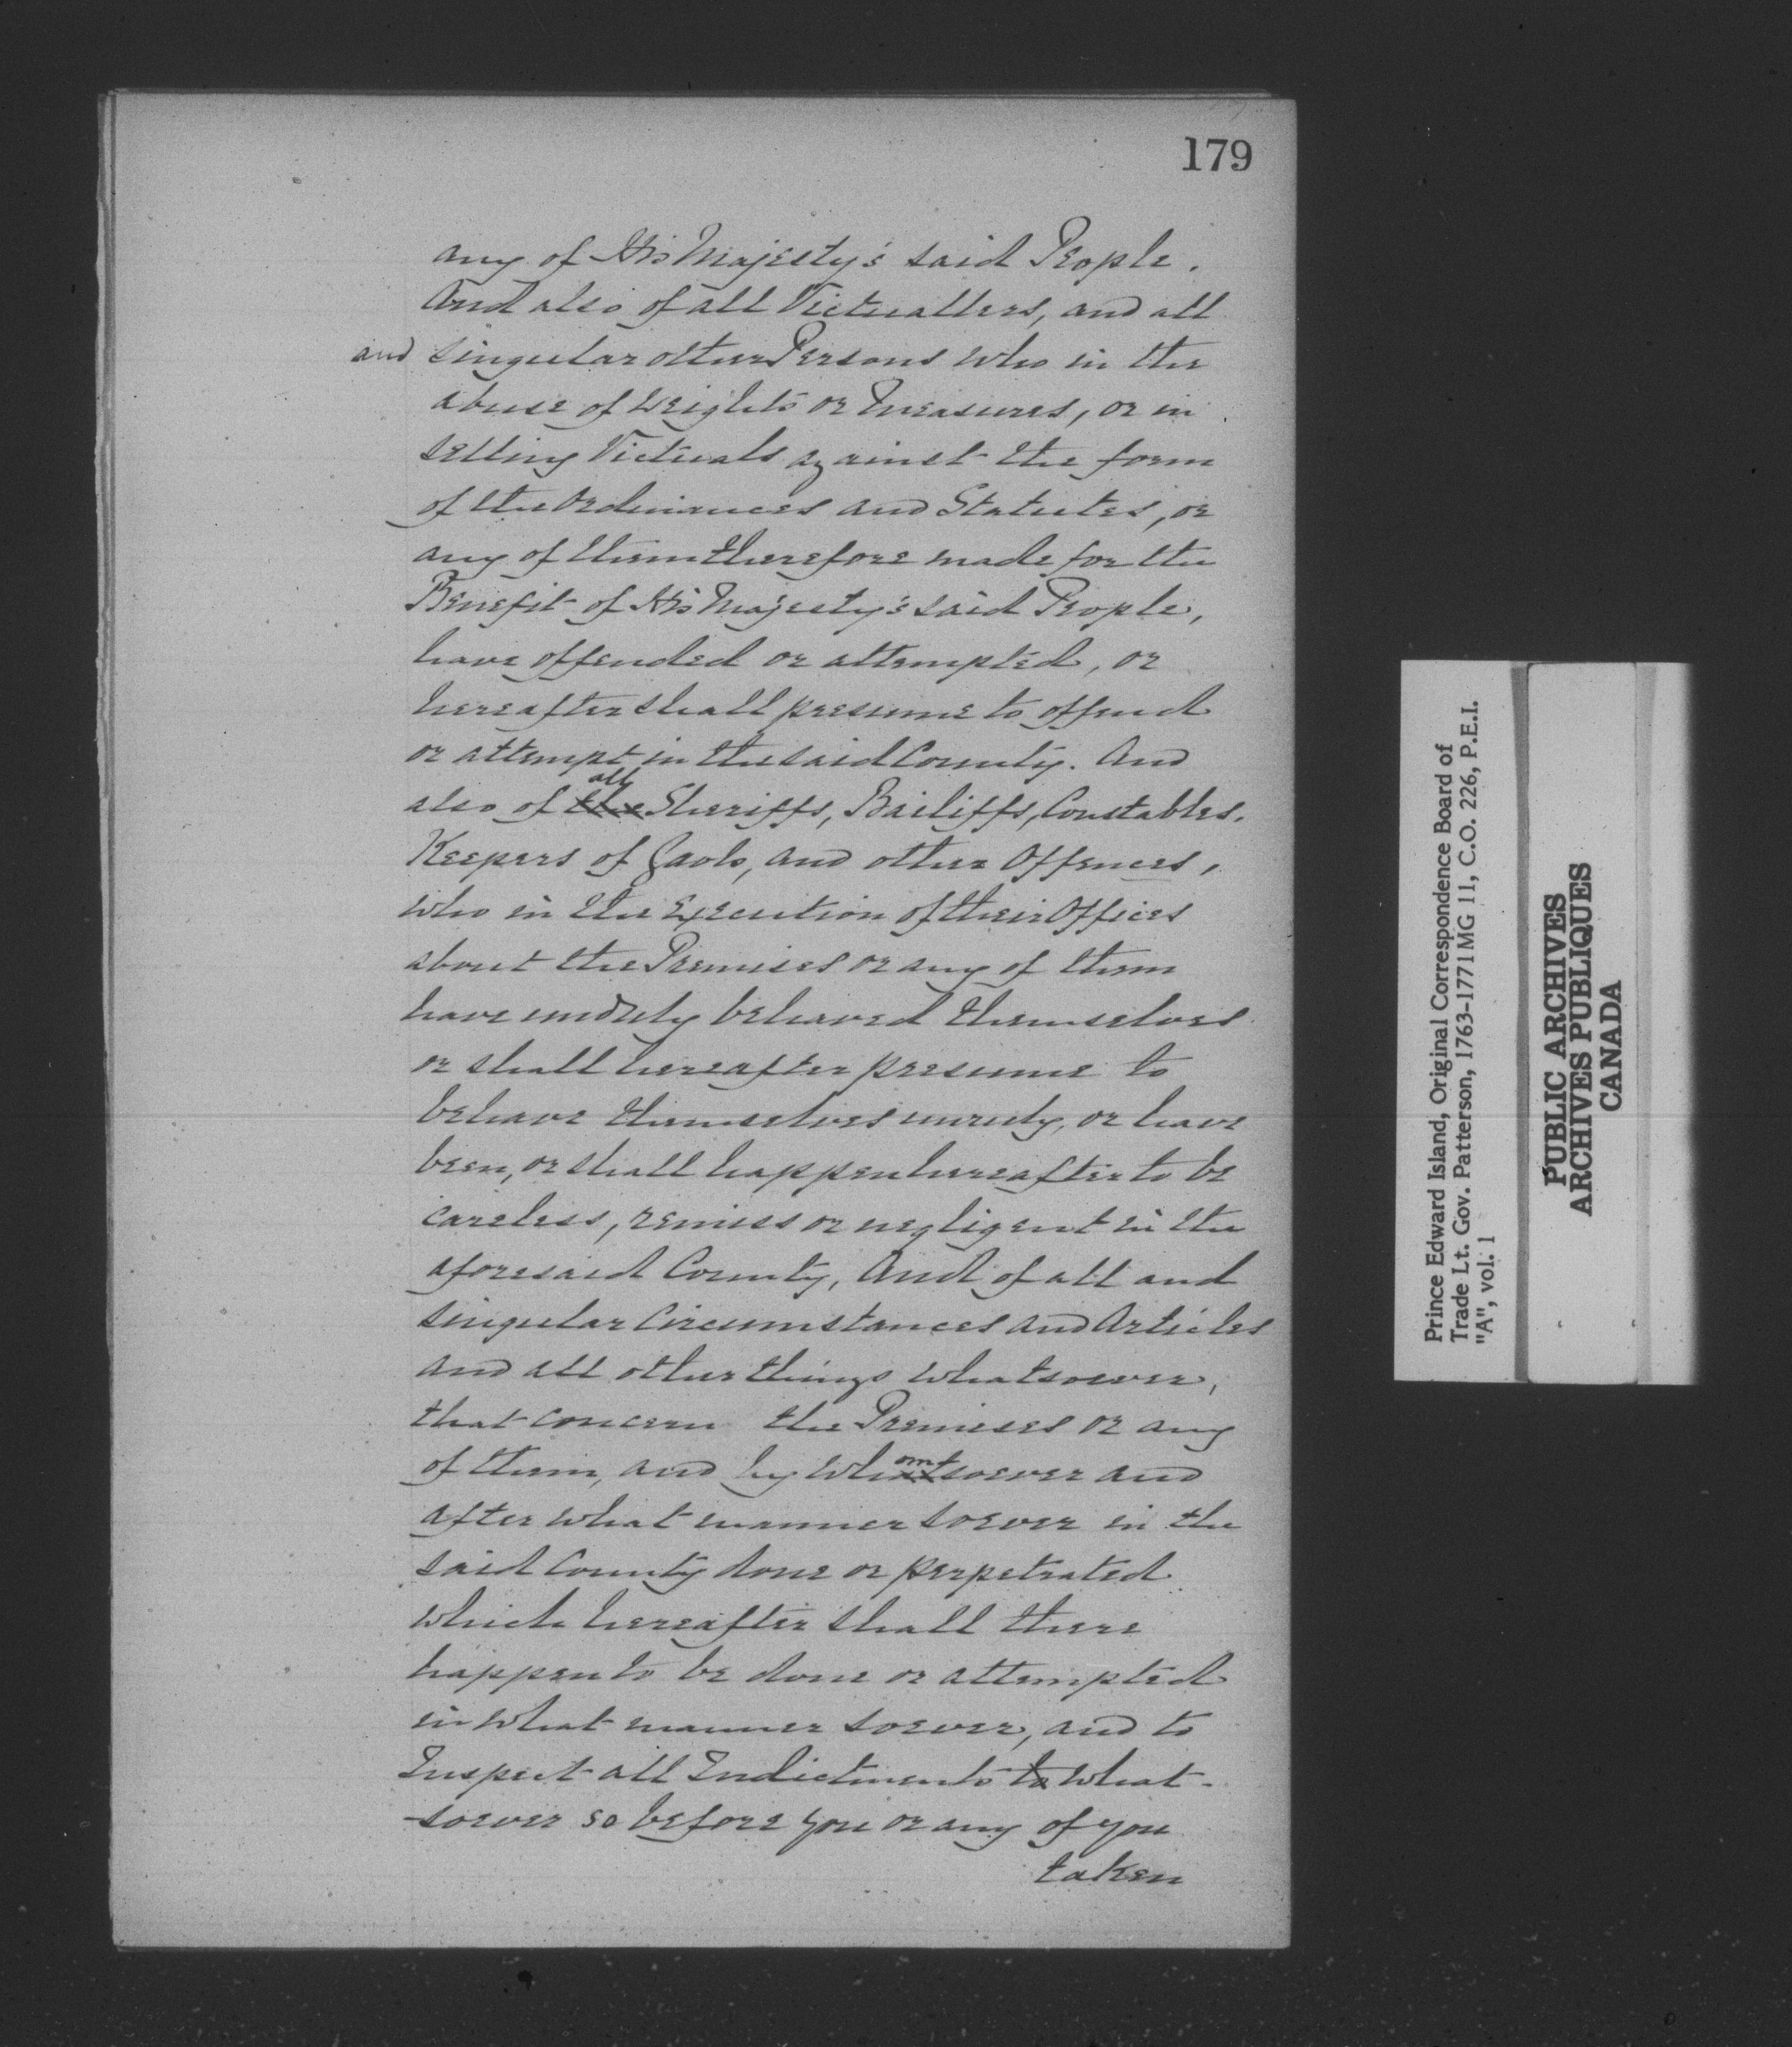 179
any of His Majesty's said People.
And also of all Victuallers, and all
and singular other Persons who in the
abuse of Weights or Measures, or in
selling Victuals against the form
of the Ordinances and Statutes, or
any of them therefore made for the
Benefit of His Majesty's said People,
have offended or attempted, or
hereafter shall presume to offend
or attempt in the said County. And
also of the all Sheriffs, Bailiffs, Constables.
Keepers of Gaols, and other Offences,
who in the Execution of their Offices
about the Premises or any of them
have unduly behaved themselves
or shall hereafter presume to
behave themselves unruly, or have
been, or shall happen hereafter to be
careless, remiss or negligent in the
aforesaid County, And of all and
singular Circumstances and Articles
and all other things whatsoever,
that concern the Premises or any
of them, and by whomsoever and
after what manner soever in the
said County done or perpetrated
which hereafter shall there
happen to be done or attempted
in what manner soever, and to
Inspect all Indictments to what-
soever so before you or any of you
taken
Prince Edward Island, Original Correspondence Board of
Trade Lt. Gov. Patterson, 1763-1771 MG 11, C.O. 226, P.E.I.
"A", vol. 1
PUBLIC ARCHIVES
ARCHIVES PUBLIQUES
CANADA